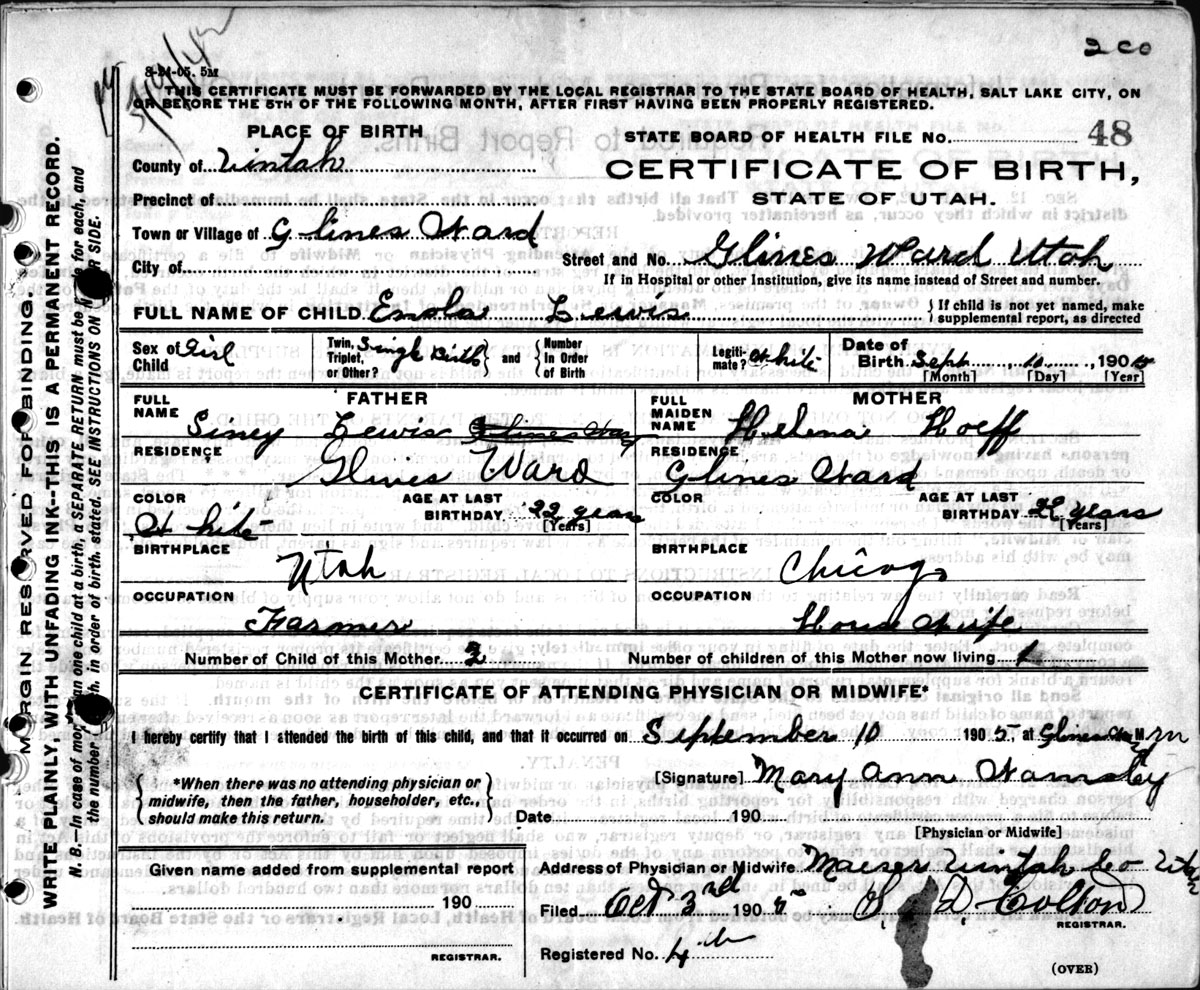 2 C 0
8-21-05. 5M
THIS CERTIFICATE MUST BE FORWARDED BY THE LOCAL REGISTRAR TO THE STATE BOARD OF HEALTH, SALT LAKE CITY, ON
OR BEFORE THE 5TH OF THE FOLLOWING MONTH, AFTER FIRST HAVING BEEN PROPERLY REGISTERED.
PLACE OF BIRTH
County of Uintah
Precinct of
Town or Village of Glines Ward
City of
STATE BOARD OF HEALTH FILE NO. 48
CERTIFICATE OF BIRTH,
STATE OF UTAH.
Street and No. Glines Ward Utah
If in Hospital or other Institution, give its name instead of Street and number.
FULL NAME OF CHILD Enola Lewis { If child is not yet named, make supplemental report, as directed
Sex of Child Girl Twin, Triplet, or Other? Single Birth and Number In Order of Birth Legitimate? White Date of Birth Sept 10 1905
[Month] [Day] [Year]
FATHER
FULL NAME Siney Lewis
RESIDENCE Glines Ward
COLOR White AGE AT LAST BIRTHDAY 22 years
[Years]
BIRTHPLACE Utah
OCCUPATION Farmer
MOTHER
FULL MAIDEN NAME Helena Hoeff
RESIDENCE Glines Ward
COLOR AGE AT LAST BIRTHDAY 22 years
[Years]
BIRTHPLACE Chicago
OCCUPATION House Wife
Number of Child of this Mother 2 Number of children of this Mother now living 1
CERTIFICATE OF ATTENDING PHYSICIAN OR MIDWIFE*
I hereby certify that I attended the birth of this child, and that it occurred on September 10 1905, at Glines M.
*When there was no attending physician or
midwife, then the father, householder, etc.,
should make this return.
[Signature] Mary Ann Wamsley
Date 190
[Physician or Midwife]
Given name added from supplemental report
190
REGISTRAR.
Address of Physician or Midwife Maeser Uintah Co Utah
Filed Oct 3rd 1905 Colton
REGISTRAR.
Registered No. 4th
(OVER)
MARGIN RESERVED FOR BINDING.
WRITE PLAINLY, WITH UNFADING INK--THIS IS A PERMANENT RECORD.
N. B.—In case of more than one child at a birth, a SEPARATE RETURN must be made for each, and
the number of each, in order of birth, stated. SEE INSTRUCTIONS ON OTHER SIDE.